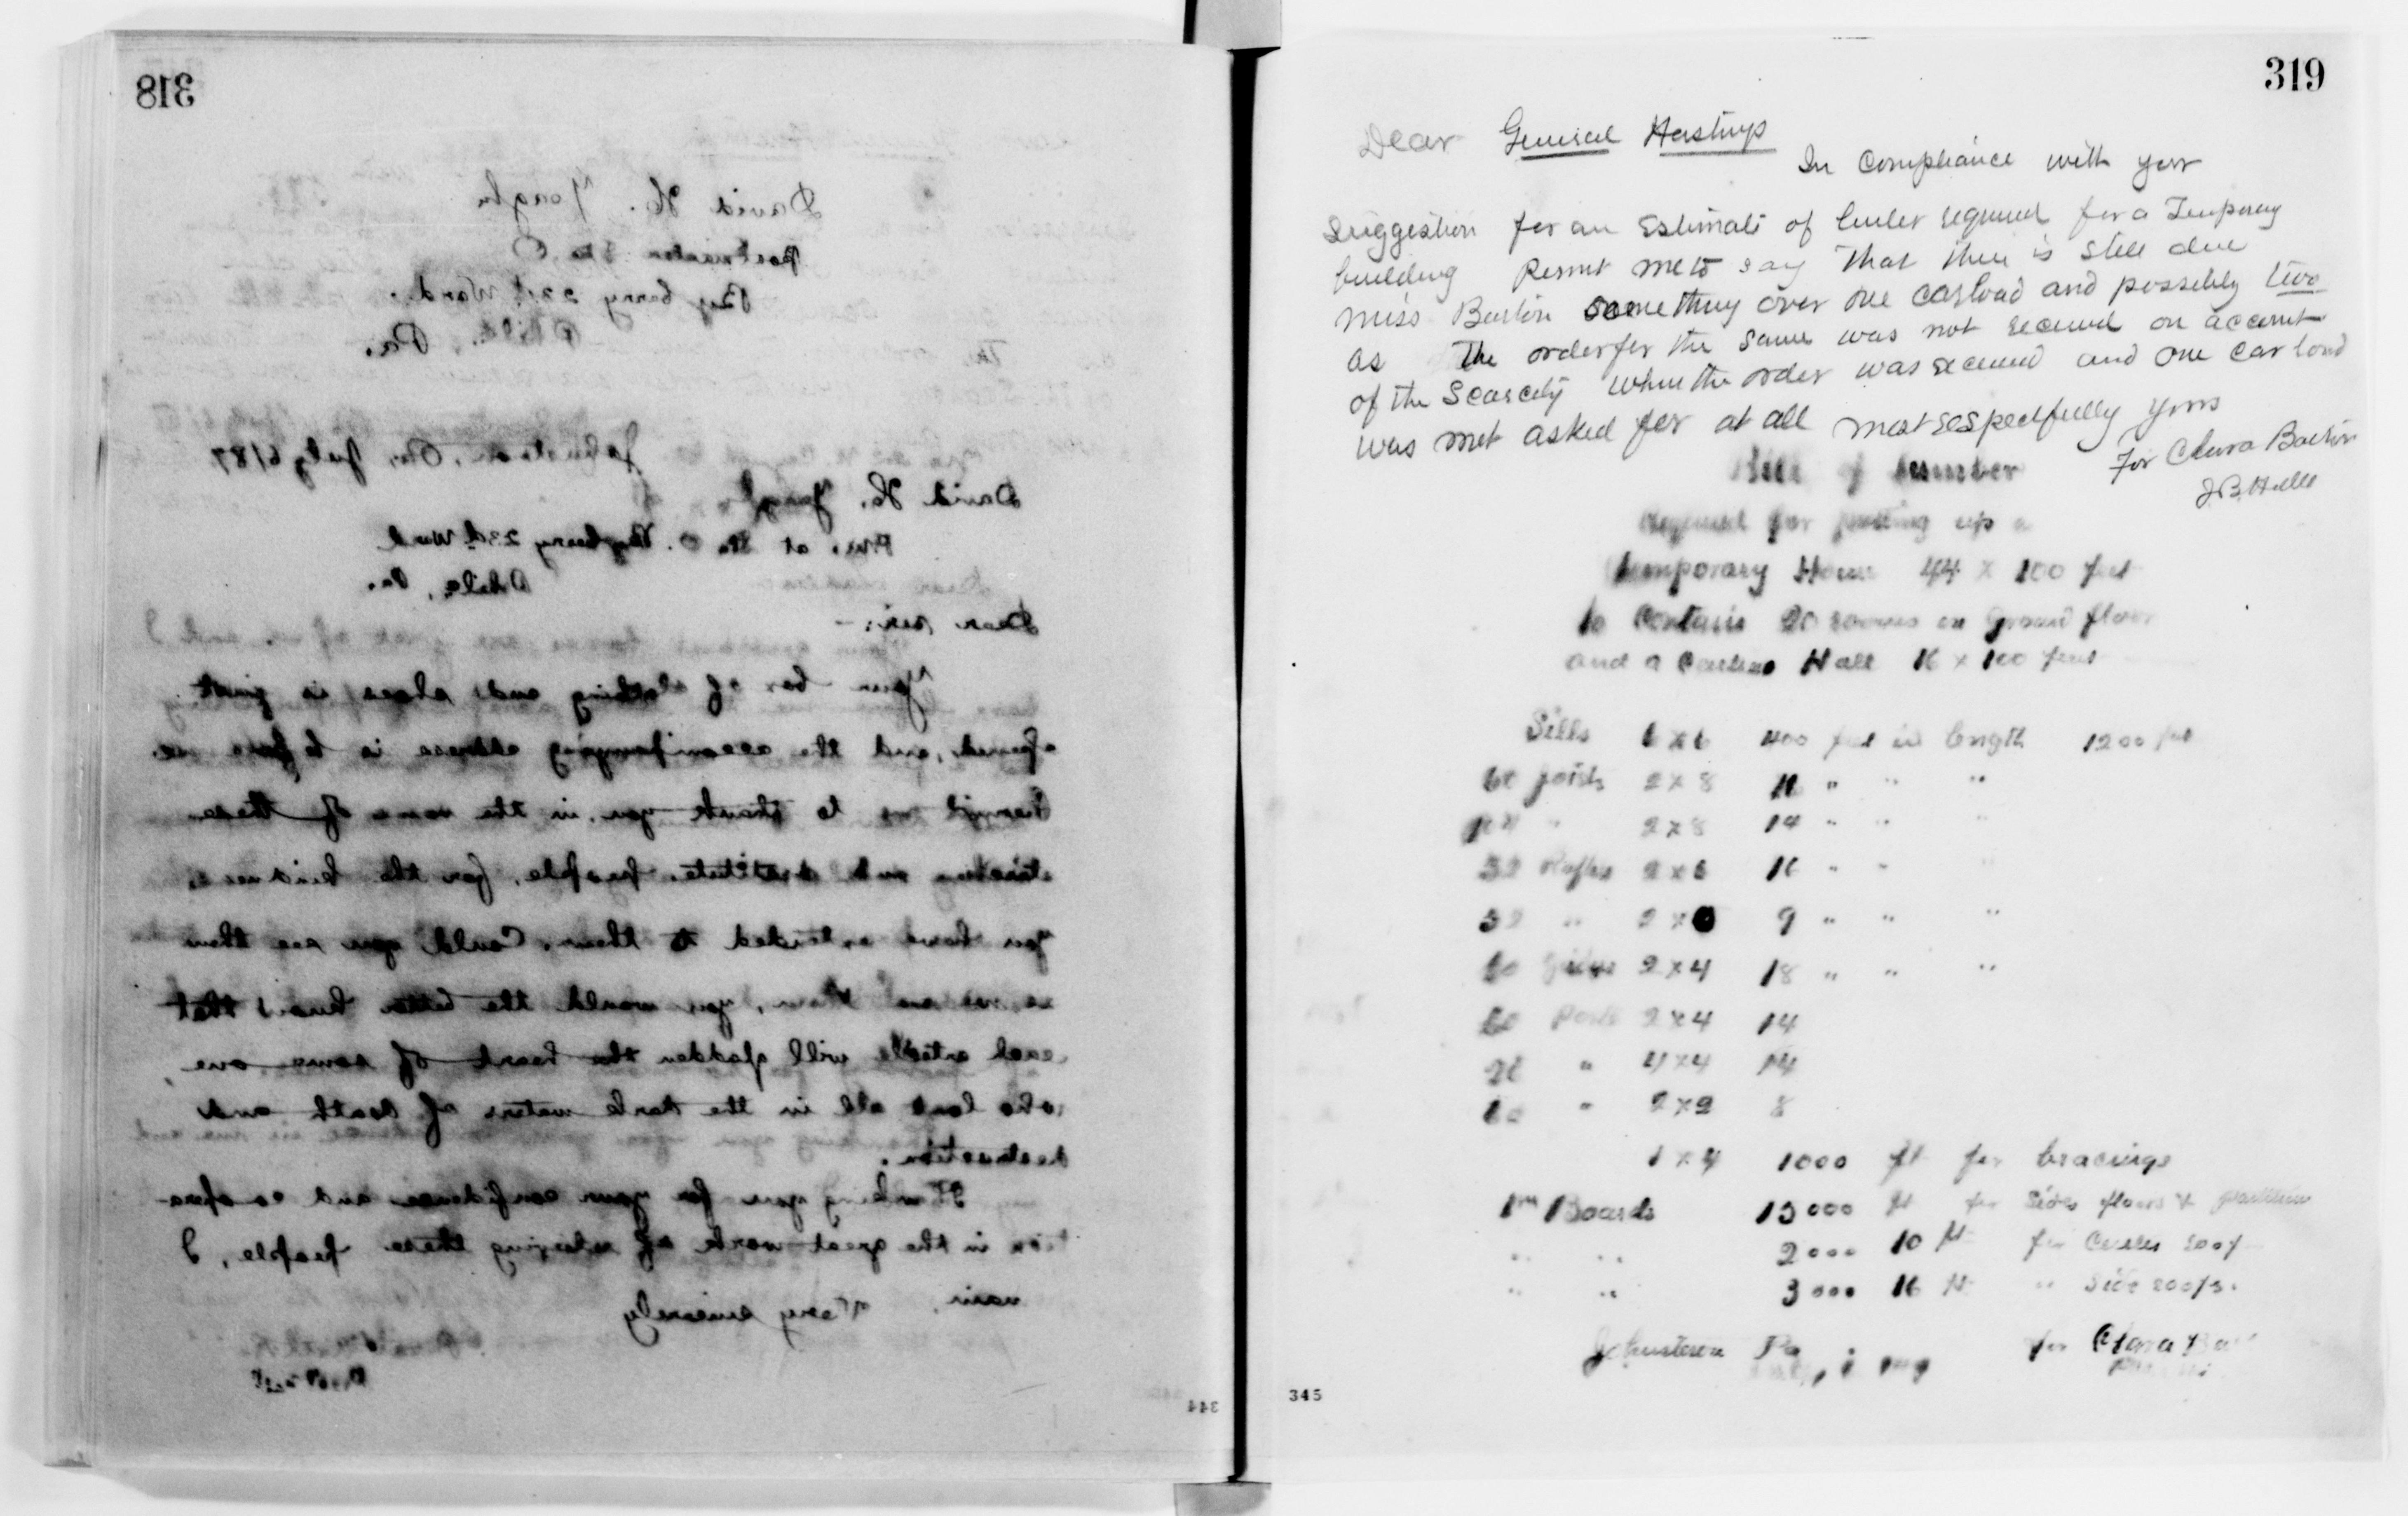 318
David H.
Postmaster Sta O
Byberry 23d Ward.
Phila. Pa.
Johnstown, Pa, July 6/89
David H.
P.M. at Sta O. Byberry 23d Ward
Phila, Pa.
Dear sir: —
Your box of clothing and shoes is just
opened, and the accompanying address is before me.
Permit me to thank you, in the name of these
stricken and destitute people, for the kindness
you have extended to them. Could you see them
as we see them, you would the better know that
each article will gladden the heart of some one
who lost all in the dark waters of death and
destruction.
Thanking you for your confidence and co-opera-
tion in the great work of relieving these people, I
main, Very sincerely
344
319
Dear General Hastings
In Compliance with your
suggestion for an Estimate of lumber required for a Temporary
building Permit me to say That there is still due
miss Barton something over one carload and possibly two
as The order for the same was not received on account
of the Scarcity when the order was received and one car load
was not asked for at all most respectfully yours
For Clara Barton
J.B. Hubbell
Bill of Lumber
required for putting up a
temporary House 44 x 100 feet
to contain 20 rooms on ground floor
and a Hall 16 x 100 feet
Sills 6 x 6 400 feet in length 1200 feet
joists 2 x 8 " " "
" 2 x 8 14 " " "
32 Rafters 2 x 6 16 " " "
32 " 2 x 9 " " "
2 x 4 18 " " "
Posts 2 x 4 14
" 4 x 4 14
" 2 x 2 8
1 x 4 1000 ft for bracings
Boards 15000 ft for Sides floors & partitions
" " 2000 10 ft for Center roof
" " 3000 16 ft " Side roofs.
Johnstown Pa for Clara
345